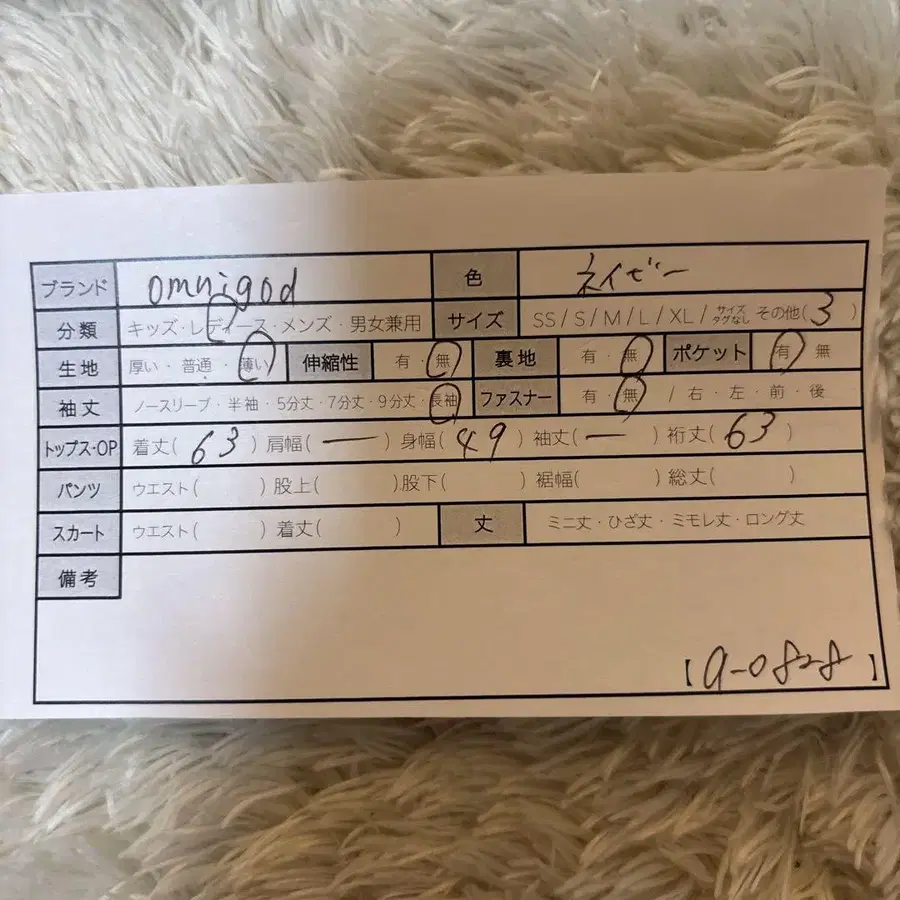 ブランド omnigod 色 ネイビー
分類 キッズ・レディース・メンズ・男女兼用 サイズ SS / S / M / L / XL / サイズタグなし その他(3)
生地 厚い・普通・薄い 伸縮性 有・無 裏地 有・無 ポケット 有・無
袖丈 ノースリーブ・半袖・5分丈・7分丈・9分丈・長袖 ファスナー 有・無 / 右・左・前・後
トップス・OP 着丈(63) 肩幅(ー) 身幅(49) 袖丈(ー) 裄丈(63)
パンツ ウエスト( ) 股上( ) 股下( ) 裾幅( ) 総丈( )
スカート ウエスト( ) 着丈( ) 丈 ミニ丈・ひざ丈・ミモレ丈・ロング丈
備考
【a-0828】